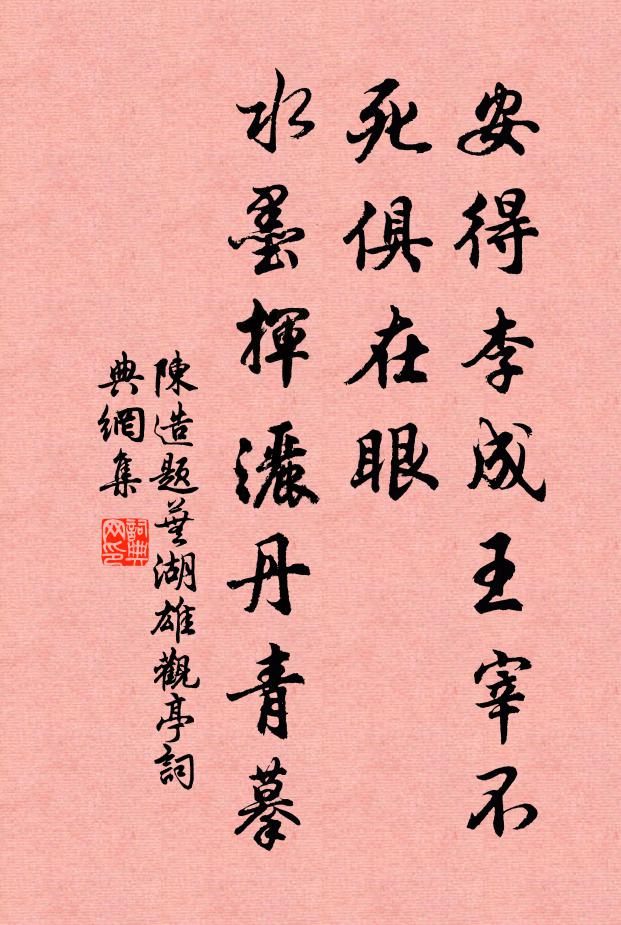 安得李成王宰不
死俱在眼
水墨揮灑丹青摹
陳造題蕪湖雄觀亭詞
典網集
詞典
网印